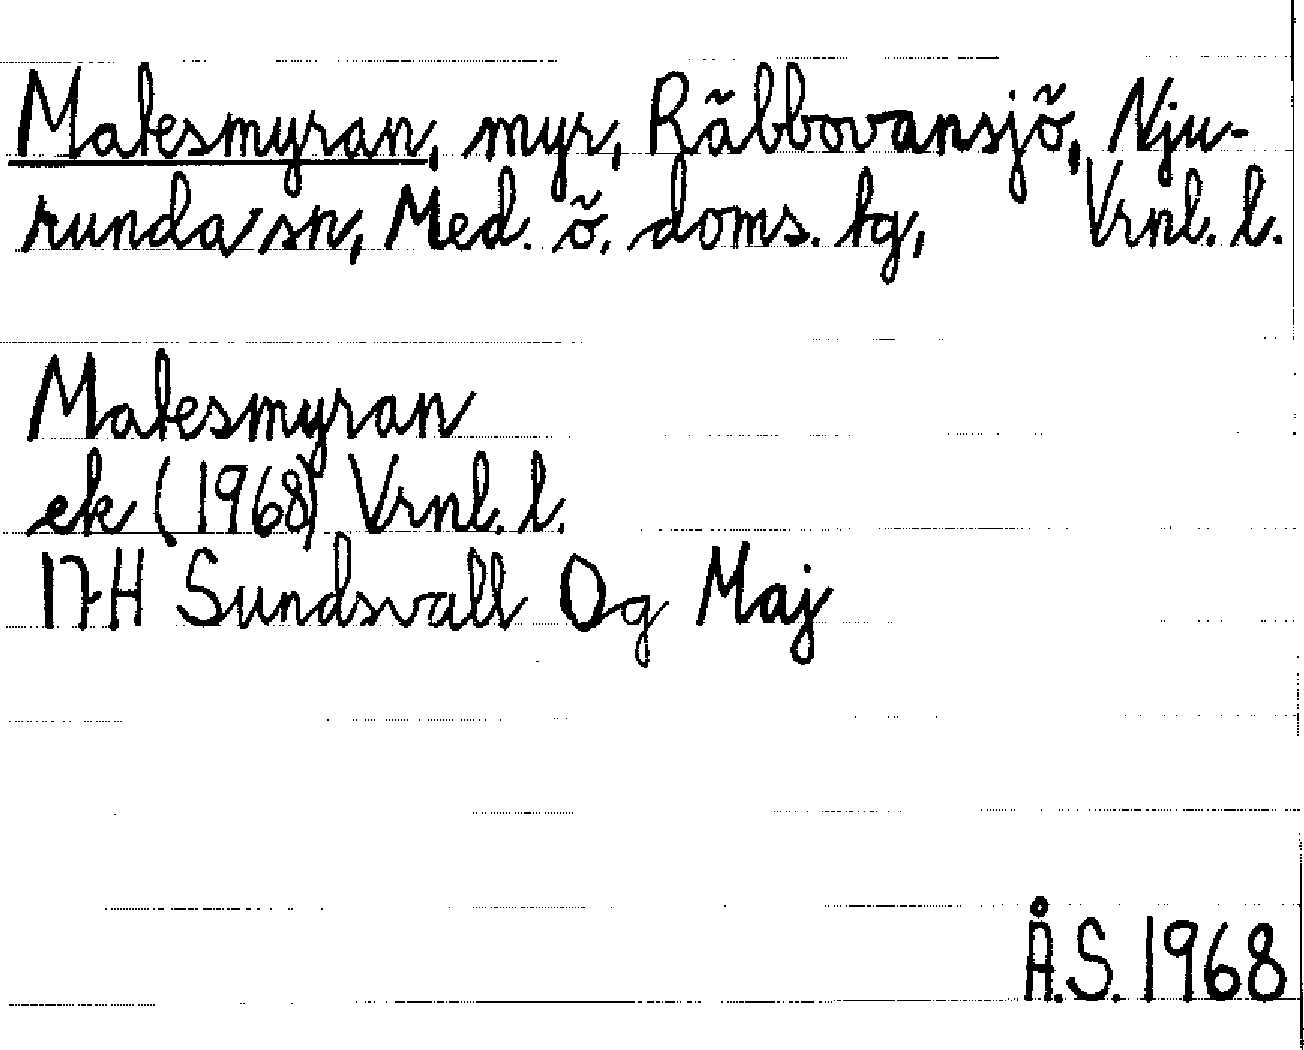 Malesmyran, myr, Räbbovansjö, Nju-
runda sn, Med. ö. doms. tg, Vrnl. l.
Malesmyran
ek (1968) Vrnl. l.
17H Sundsvall Og Maj
Å.S. 1968